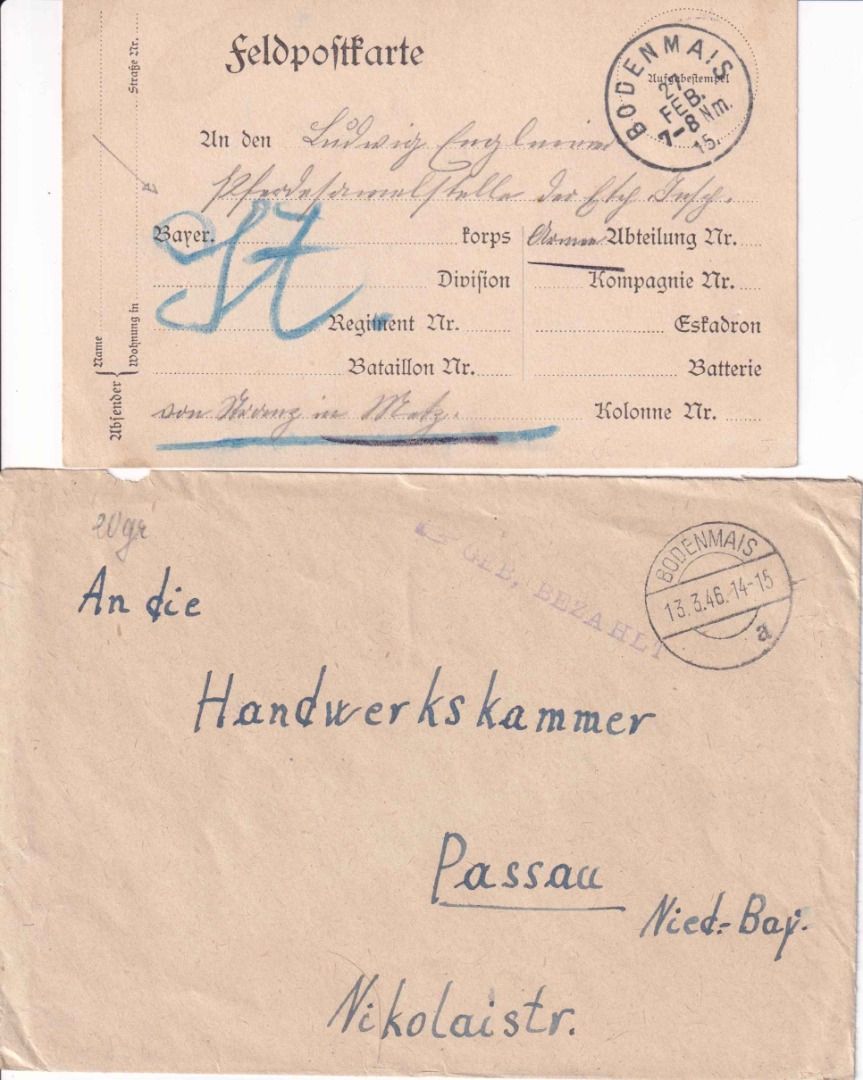 Feldpostkarte
Aufgabestempel
BODENMAIS
FEB.
7-8 Nm.
15.
Straße Nr.
Wohnung in
Name
Absender
An den Ludwig
Pferdesamelstelle der
Bayer. korps
Armee Abteilung Nr.
Division
Kompagnie Nr.
Regiment Nr.
Eskadron
Bataillon Nr.
Batterie
von in Metz.
Kolonne Nr.
20gr
GEB. BEZAHLT
BODENMAIS
13.3.46.14-15
a
An die
Handwerkskammer
Passau
Nied.-Bay.
Nikolaistr.